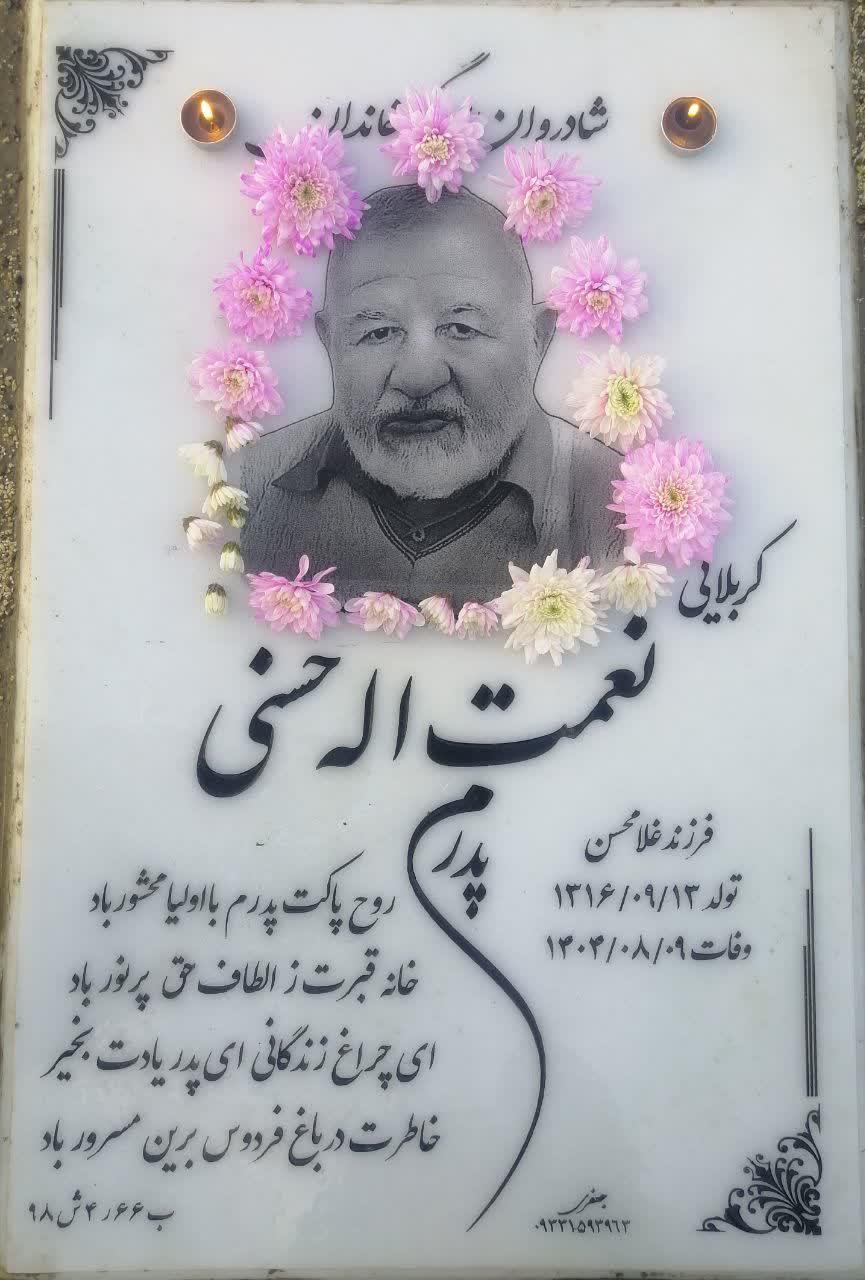 شادروان خاندان
کربلایی
نعمت اله حسنی
پدرم
فرزند غلامحسن
تولد ۱۳۱۶/۰۹/۱۳
وفات ۱۴۰۴/۰۸/۰۹
روح پاکت پدرم با اولیا محشور باد
خانه قبرت ز الطاف حق پرنور باد
ای چراغ زندگانی ای پدر یادت بخیر
خاطرت در باغ فردوس برین مسرور باد
ب ۶۶ ر ۴ ش ۹۸
جعفری
۰۹۳۳۱۵۹۳۹۶۳